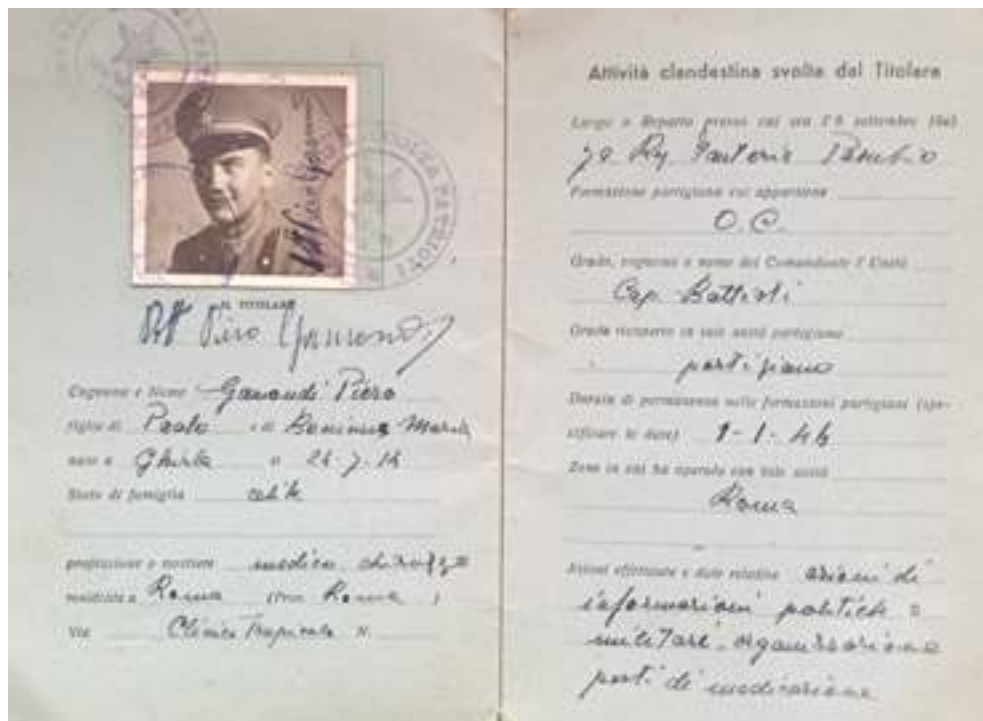 IL TITOLARE
Dott Piero
Cognome e Nome Piero
figlio di Paolo e di Maria
nato a Ghirla il
Stato di famiglia celibe
professione o mestiere medico chirurgo
residente a Roma (Prov. Roma )
Via Clinica Tropicale N.
Attività clandestina svolta dal Titolare
Corpo o Reparto presso cui era l'8 settembre 1943
Fanteria
Formazione partigiana cui apparteneva
O.C.
Grado, cognome e nome del Comandante l'Unità
Cap. Battisti
Grado ricoperto in tale unità partigiana
partigiano
Durata di permanenza nelle formazioni partigiane (spe-
cificare le date) 1-1-44
Zona in cui ha operato con tale unità
Roma
Azioni effettuate e date relative azioni di
informazioni politiche e
militari, organizzazione
posti di medicazione